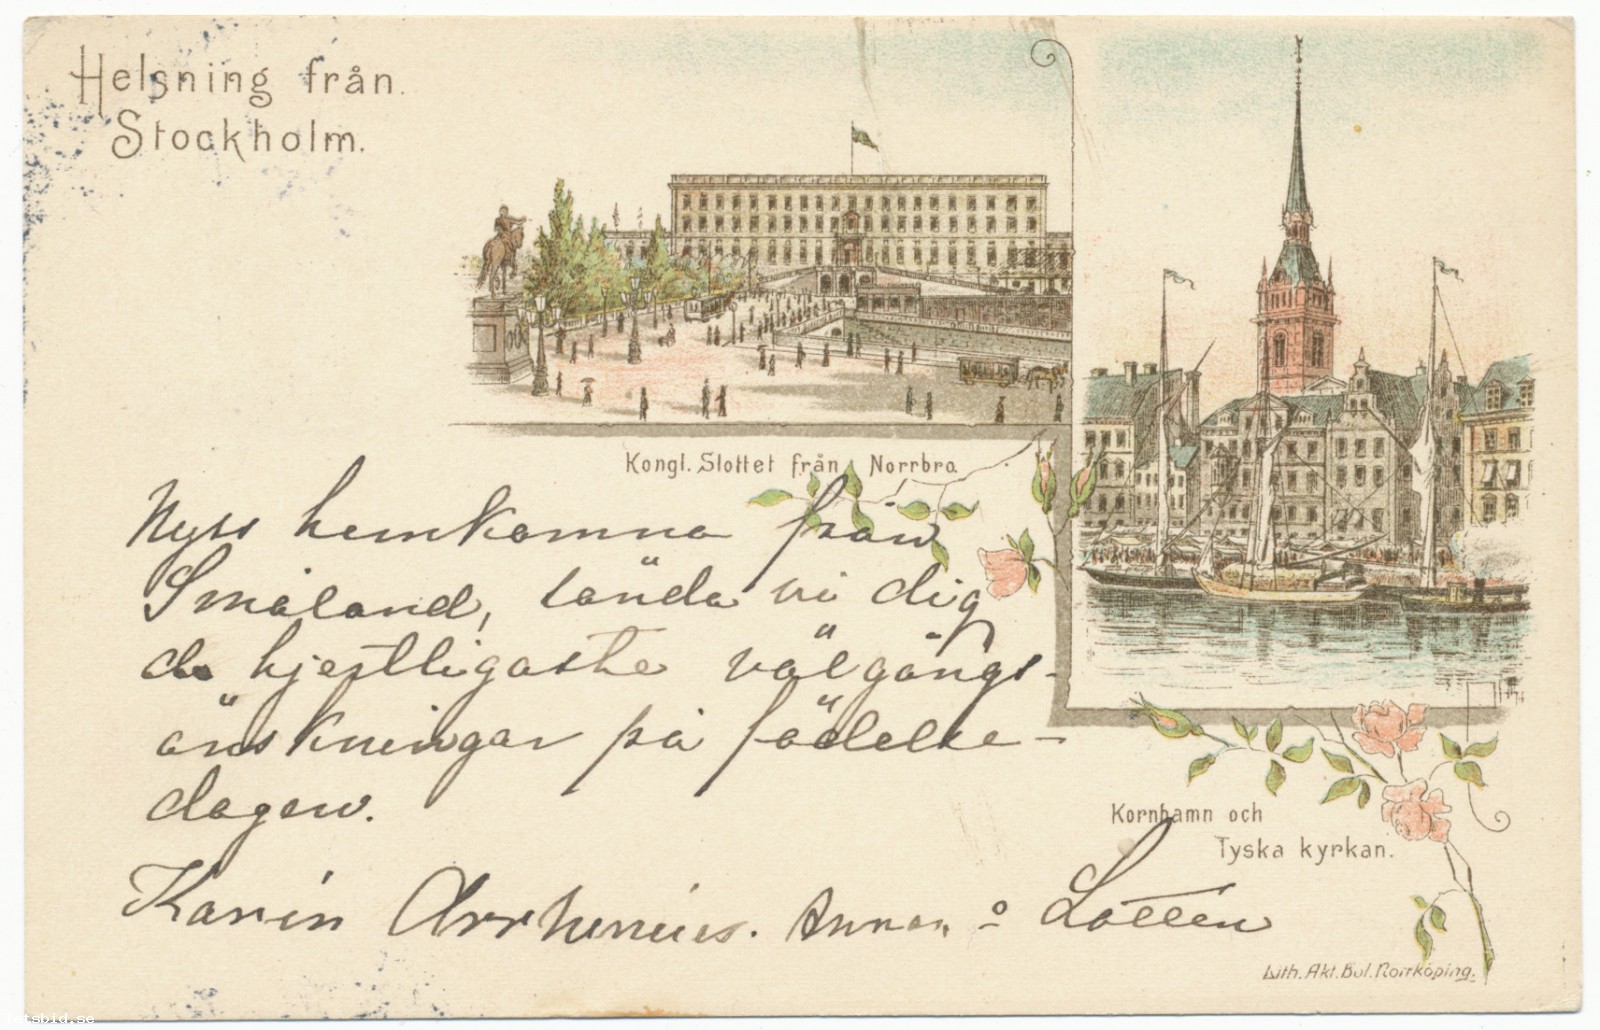 Helsning från
Stockholm.
Kongl. Slottet från Norrbro
Nyss hemkomna från
Småland, sända vi dig
de hjertligaste välgångs-
önskningar på födelse-
dagen.
Karin Arrhenius. Anna, o Lotten
Kornhamn och
Tyska kyrkan.
Lith. Akt. Bol. Norrköping.
letsbid.se